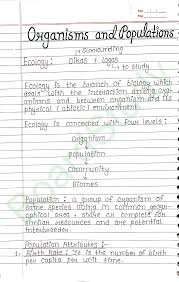 Date
Page
Organisms and Populations
↳ Surrounding
Ecology: Oikos + logos
↳ to study
Ecology is the branch of biology which
deals with the interaction among org-
anisms and between organism and its
physical (abiotic) environment.
Ecology is concerned with four levels:
Organism
↓
population
↓
Community
↓
Biomes
Population: a group of organism of
same species living in common geogr-
aphical area, share or complete for
similar resources and are potential
interbreeder.
Population Attributes :-
1. Birth Rate: It is the number of birth
per capita per unit time.